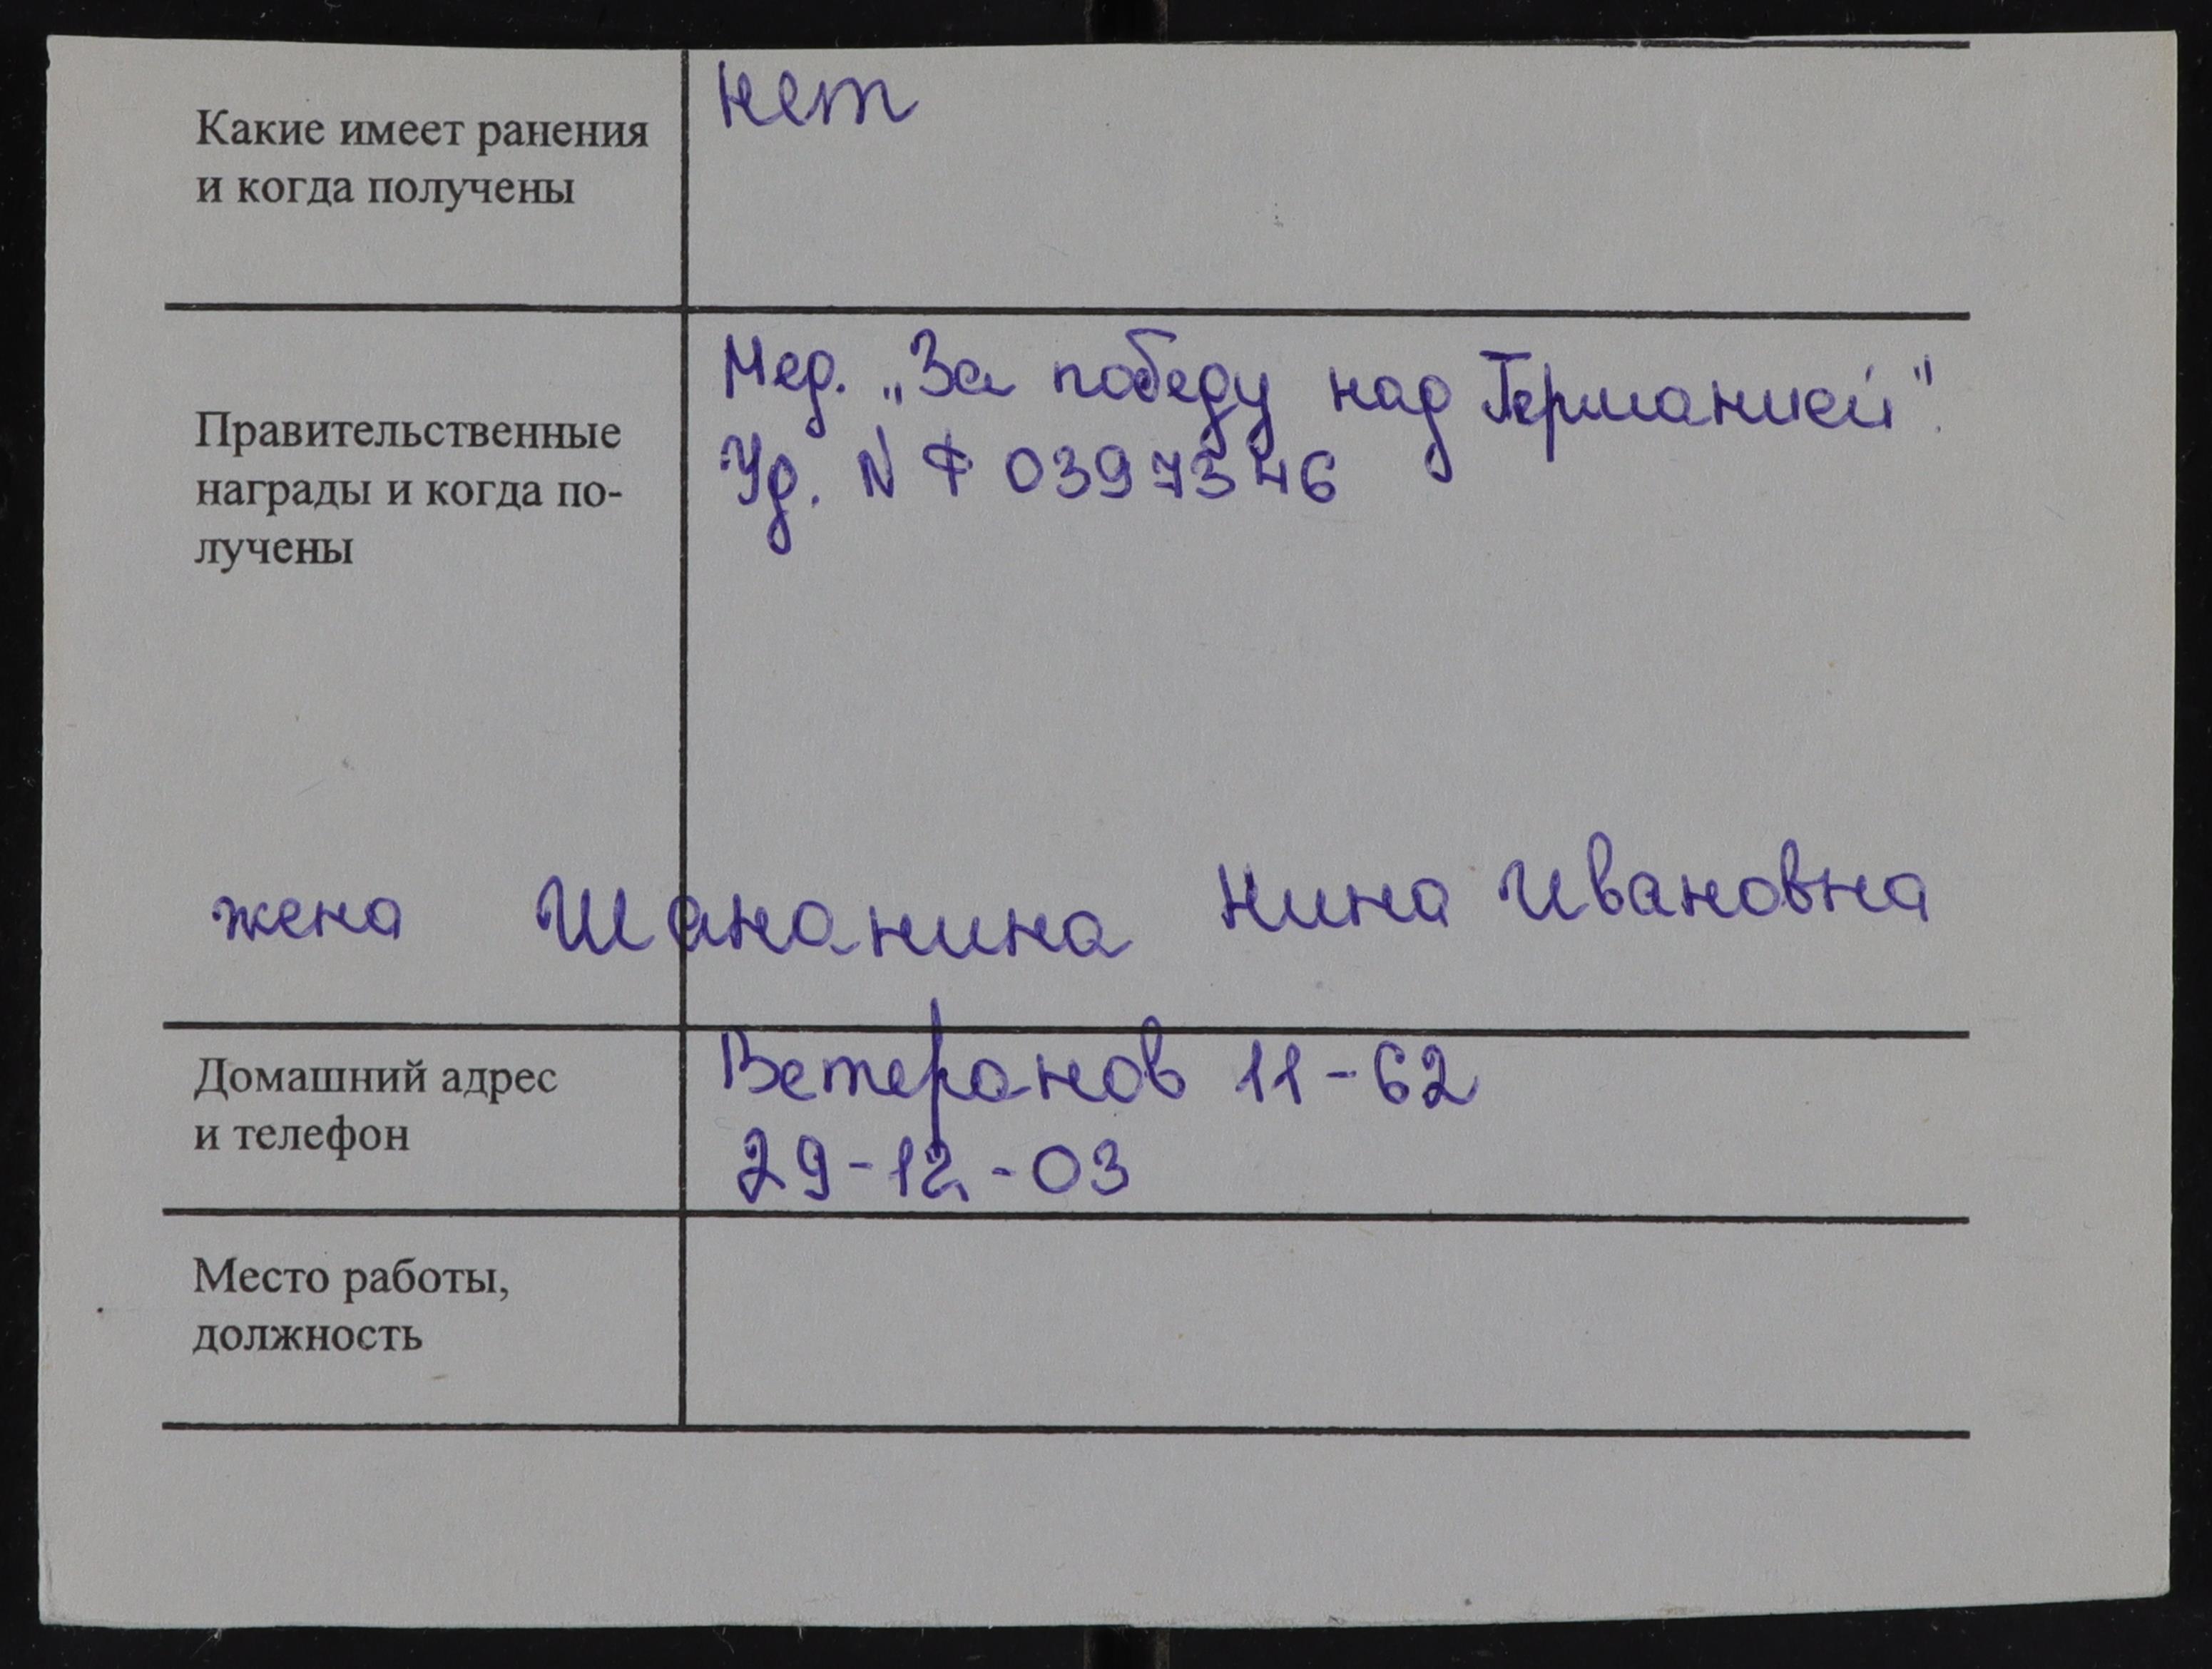 Какие имеет ранения
и когда получены
нет
Правительственные
награды и когда по-
лучены
Мед. „За победу над Германией".
Уд. N Ф 0397346
жена Шананина Нина Ивановна
Домашний адрес
и телефон
Ветеранов 11-62
29-12-03
Место работы,
должность